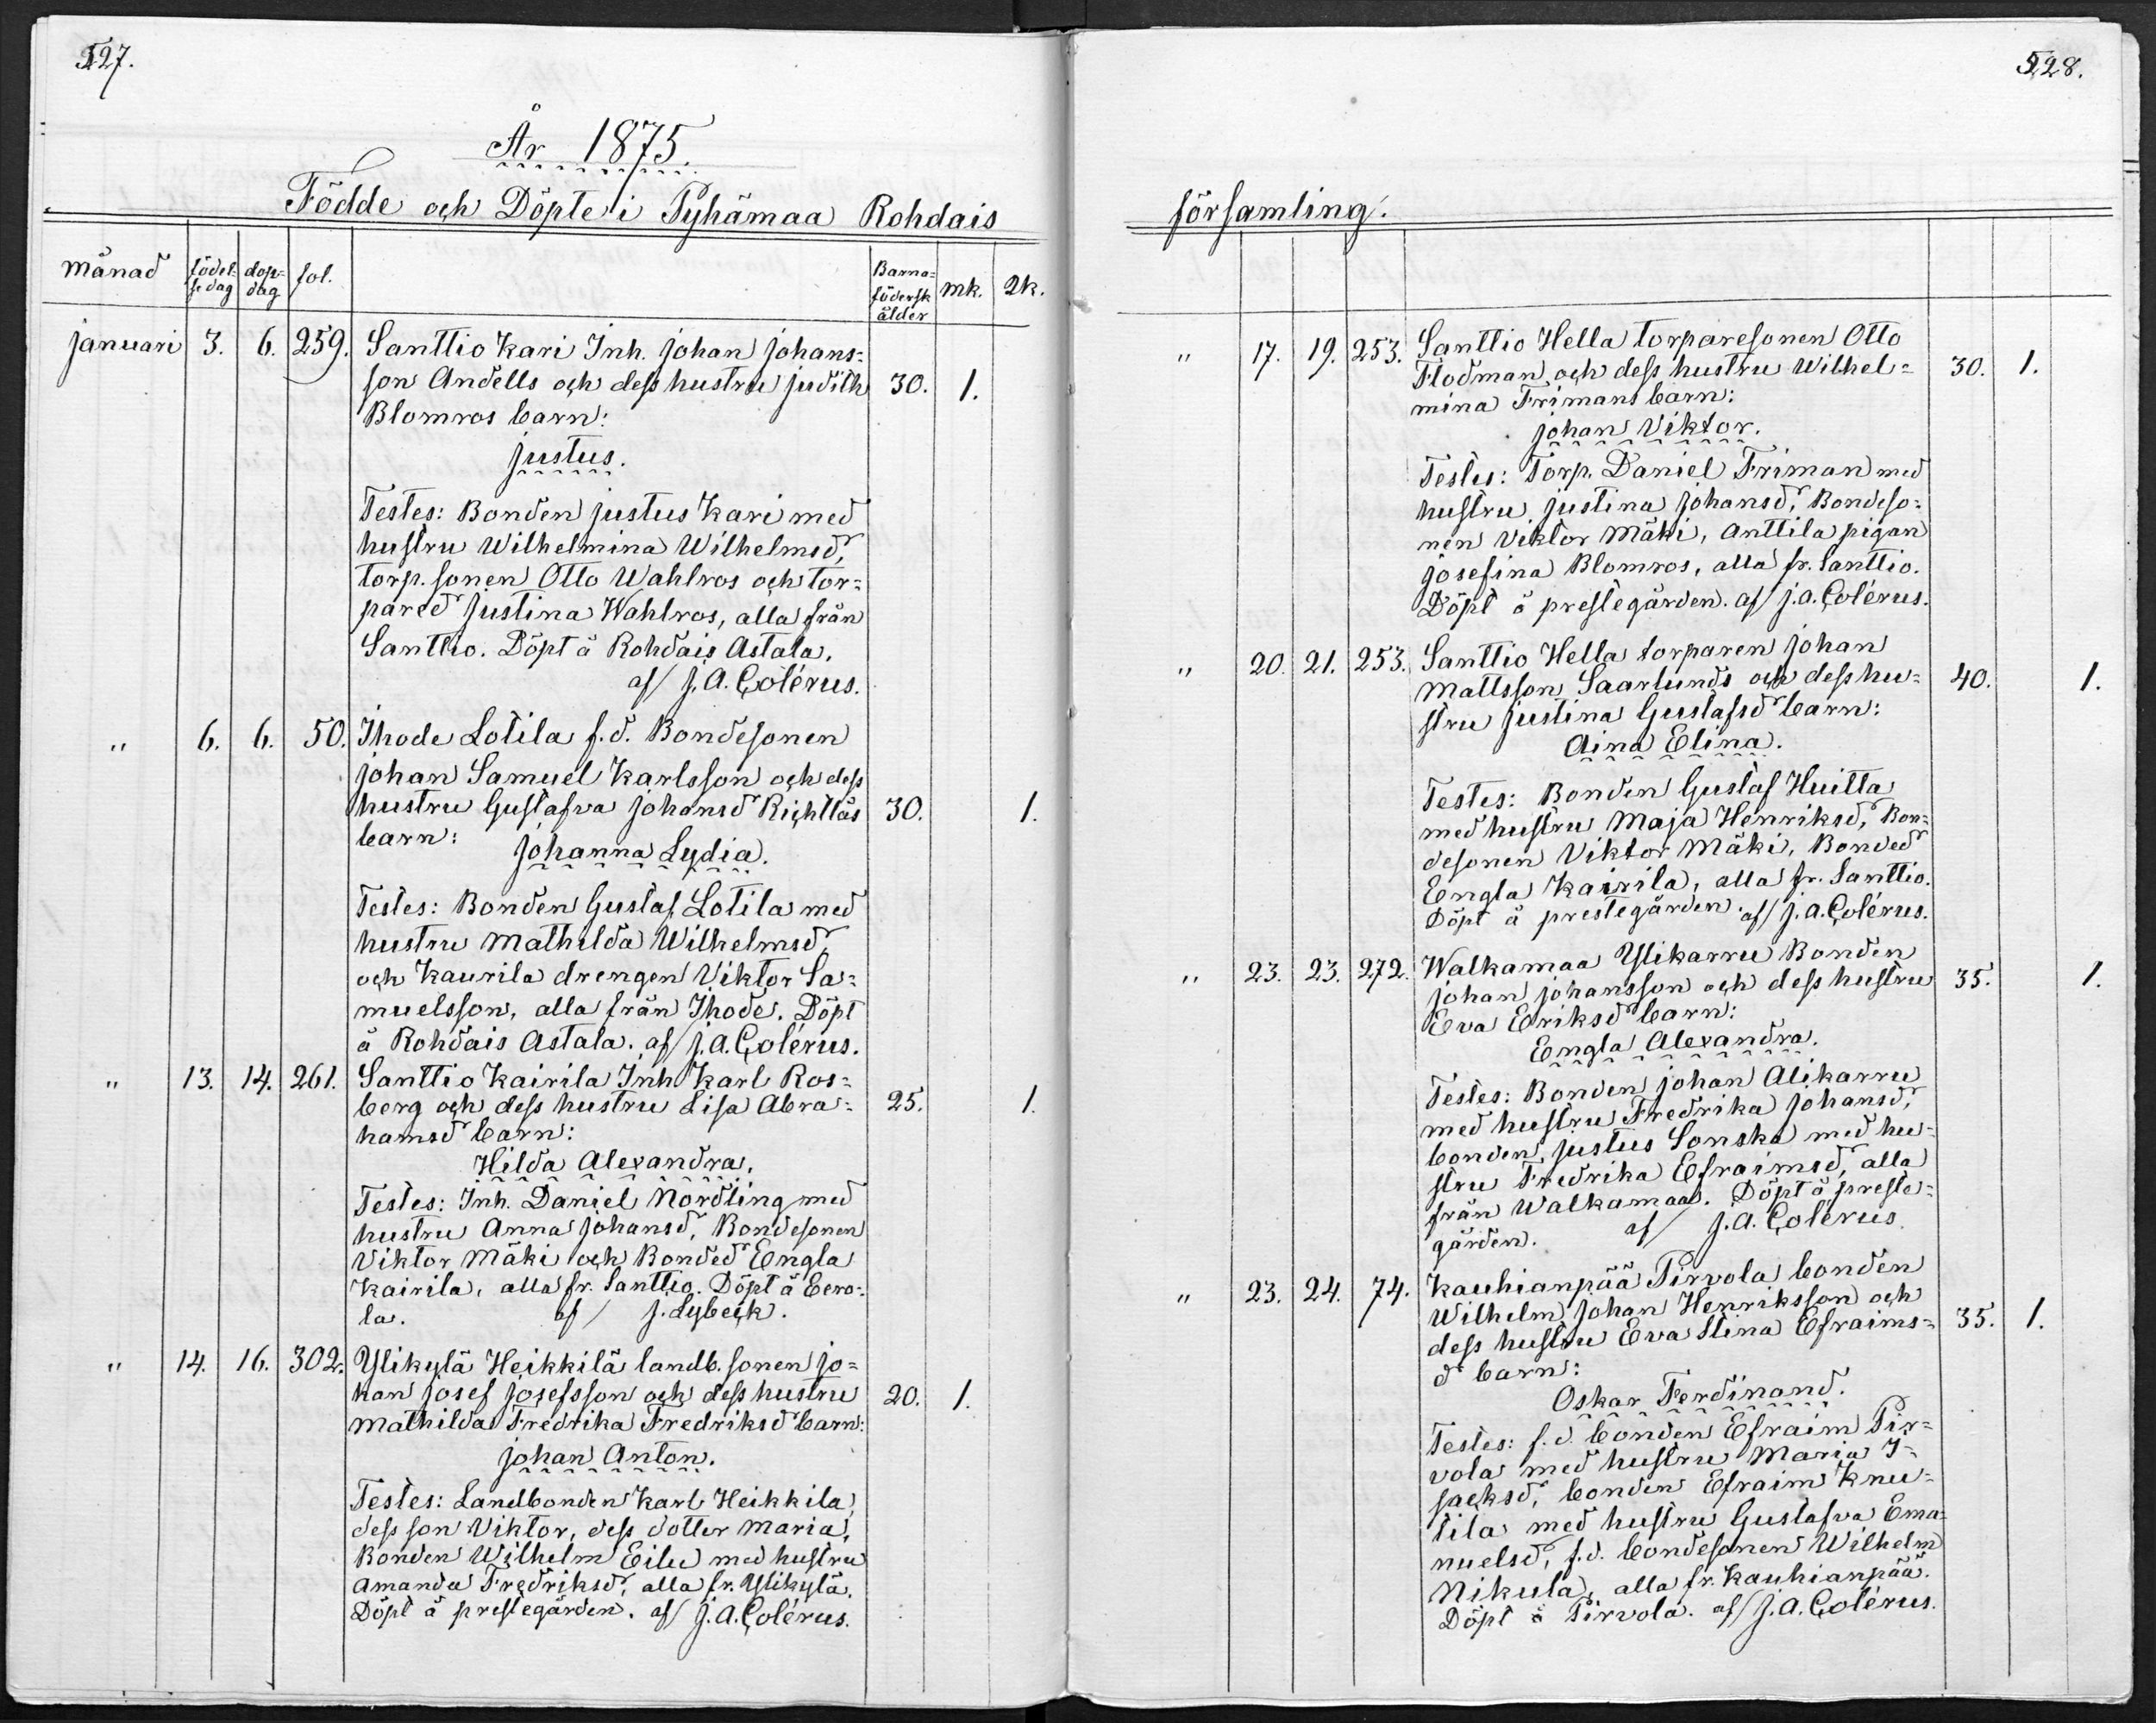 527.
År 1875.
Födde och Döpte i Pyhämaa Rohdais
månad födel-sedag dop-dag fol. Barna-födersk ålder mk. Qk.
januari 3. 6. 259. Santtio Kari Inh. Johan Johans-
son Andells och dess hustru Judith 30. 1.
Blomros barn:
Justus.
Testes: Bonden Justus Kari med
hustru Wilhelmina Wilhelmsd,
torp. sonen Otto Wahlros och tor-
pared Justina Wahlros, alla från
Santtio. Döpt å Rohdais Astala.
af J. A. Colérus.
" 6. 6. 50. Ihode Lotila f.d. Bondesonen
Johan Samuel Karlsson och dess
hustru Gustafva Johansd Richtlås 30. 1.
barn: Johanna Lydia.
Testes: Bonden Gustaf Lotila med
hustru Mathilda Wilhelmsd,
och Kaurila drengen Viktor Sa-
muelsson, alla från Ihode. Döpt
å Rohdais Astala. af J. A. Colérus.
" 13. 14. 261. Santtio Kairila Inh Karl Ros-
berg och dess hustru Lisa Abra- 25. 1.
hamsd barn:
Hilda Alexandra.
Testes: Inh. Daniel Nordling med
hustru Anna Johansd, Bondesonen
Viktor Mäki och Bonded Engla
Kairila, alla fr. Santtio. Döpt å Eero-
la. af J. Lybeck.
" 14. 16. 302. Ylikylä Heikkilä landb. sonen Jo-
han Josef Josefsson och dess hustru 20. 1.
Mathilda Fredrika Fredriksd barn:
Johan Anton.
Testes: Landbonden Karl Heikkila,
dess son Viktor, dess dotter Maria,
Bonden Wilhelm Eilu med hustru
Amanda Fredriksd, alla fr. Ylikylä.
Döpt å prestegården. af J. A. Colérus.
528.
församling.
" 17. 19. 253. Santtio Hella torparesonen Otto
Flodman och dess hustru Wilhel- 30. 1.
mina Frimans barn:
Johan Viktor.
Testes: Torp. Daniel Friman med
hustru Justina Johansd, Bondeso-
nen Viktor Mäki, Anttila pigan
Josefina Blomros, alla fr. Santtio.
Döpt å prestegården. af J. A. Colérus.
" 20. 21. 253. Santtio Hella torparen Johan
Mattsson Saarlunds och dess hu- 40. 1.
stru Justina Gustafsd barn:
Aina Elina.
Testes: Bonden Gustaf Huitta
med hustru Maja Henriksd, Bon-
desonen Viktor Mäki, Bonded
Engla Kairila, alla fr. Santtio.
Döpt å prestegården. af J. A. Colérus.
" 23. 23. 272. Walkamaa Ylikarru Bonden
Johan Johansson och dess hustru 35. 1.
Eva Eriksd barn:
Engla Alexandra.
Testes: Bonden Johan Alikarru
med hustru Fredrika Johansd,
bonden Justus Sonska med hu-
stru Fredrika Efraimsd, alla
från Walkamaa. Döpt å preste-
gården. af J. A. Colérus.
" 23. 24. 74. Kauhianpää Pirvola bonden
Wilhelm Johan Henriksson och
dess hustru Eva Stina Efraims- 35. 1.
d barn:
Oskar Ferdinand.
Testes: f.d. bonden Efraim Pir-
vola med hustru Maria I-
sacksd, bonden Efraim Knu-
tila med hustru Gustafva Ema-
nuelsd, f.d. bondesonen Wilhelm
Nikula, alla fr. Kauhianpää.
Döpt å Pirvola. af J. A. Colérus.